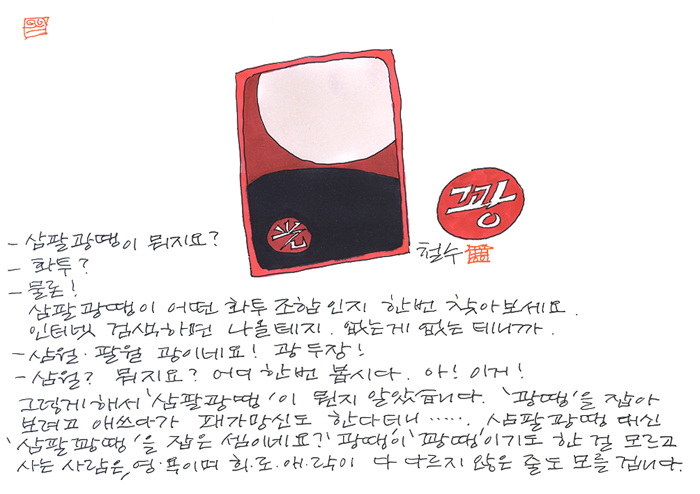 光
꽝
철수
- 삼팔광땡이 뭐지요?
- 화투?
- 물론!
삼팔광땡이 어떤 화투 조합인지 한번 찾아보세요.
인터넷 검색하면 나올테지. 없는게 없는 테니까.
- 삼월·팔월 광이네요! 광 두장!
- 삼월? 뭐지요? 어디 한번 봅시다. 아! 이거!
그렇게 해서 '삼팔광땡'이 뭔지 알았습니다. '광땡'을 잡아
보려고 애쓰다가 패가망신도 한다더니 ..... 삼팔광땡 대신
'삼팔꽝땡'을 잡은 셈이네요? '광땡'이 '꽝땡'이기도 한 걸 모르고
사는 사람은, 영·욕이며 희·로·애·락이 다 다르지 않은 줄도 모를 겁니다.